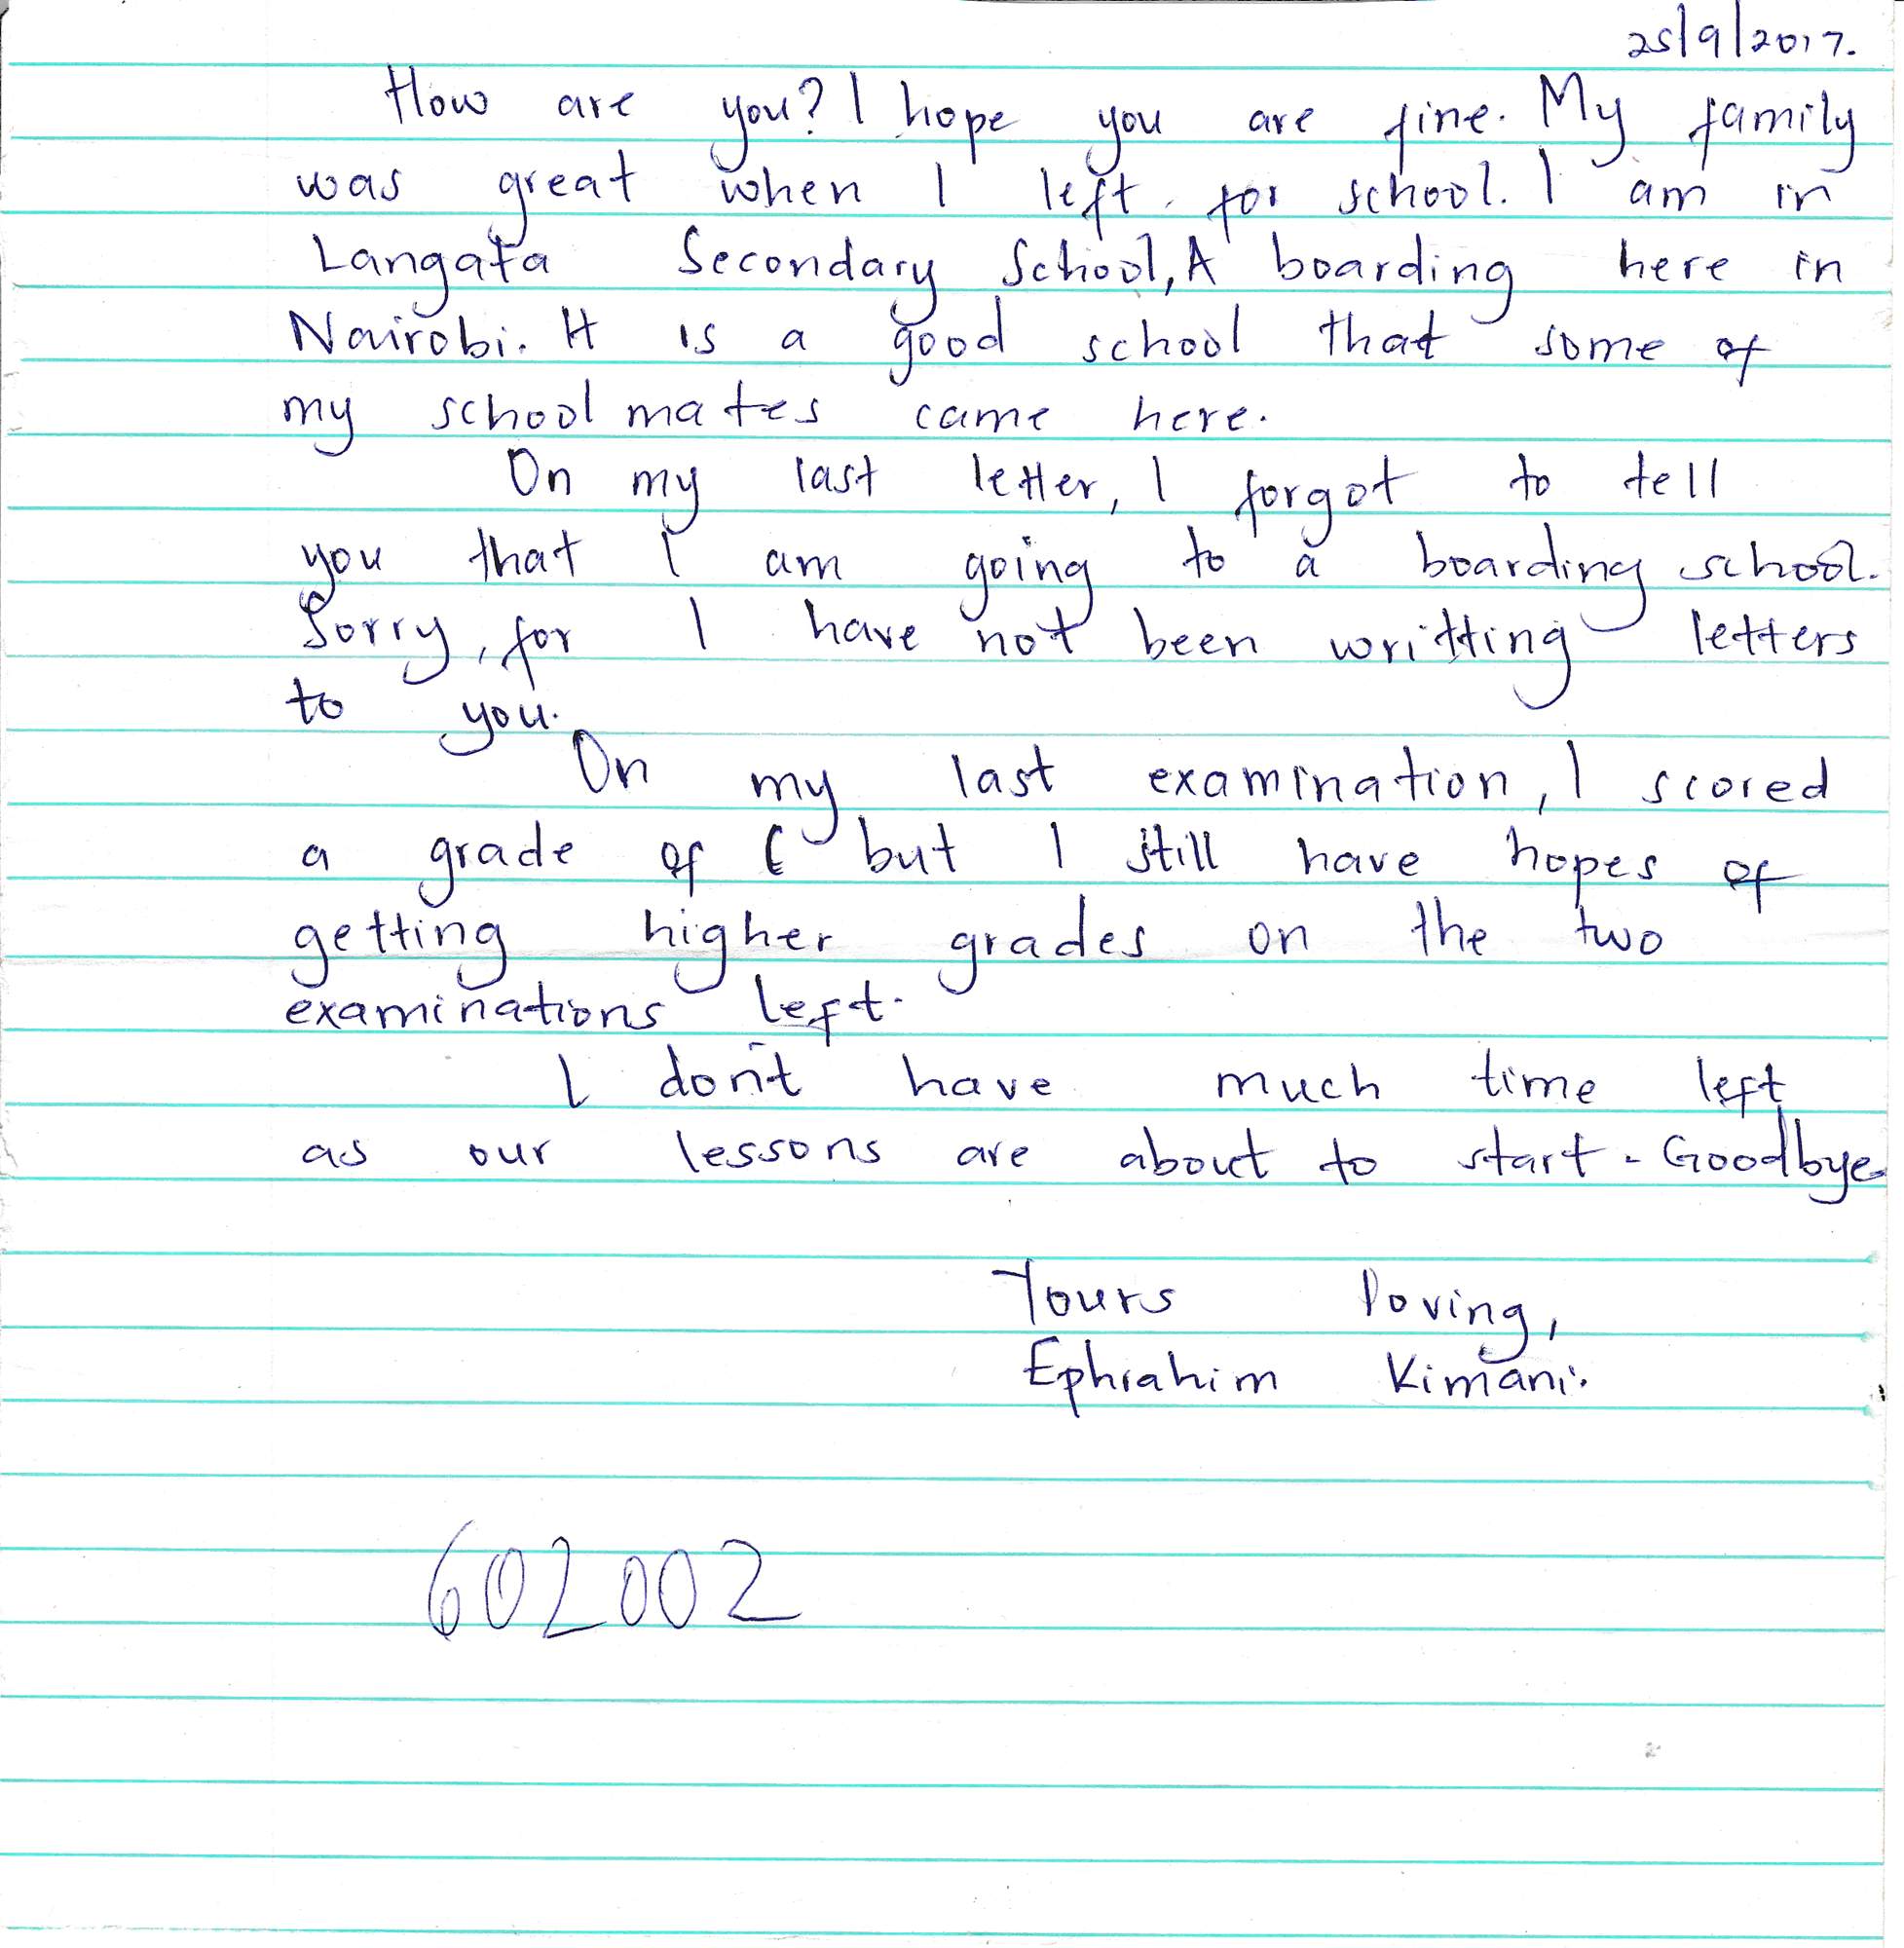 25/9/2017.
How are you? I hope you are fine. My family
was great when I left for school. I am in
Langata Secondary School, A boarding here in
Nairobi. It is a good school that some of
my school mates came here.
On my last letter, I forgot to tell
you that I am going to a boarding school.
Sorry, for I have not been writting letters
to you.
On my last examination, I scored
a grade of C but I still have hopes of
getting higher grades on the two
examinations left.
I don't have much time left
as our lessons are about to start. Goodbye.
Yours loving,
Ephrahim Kimani.
602002